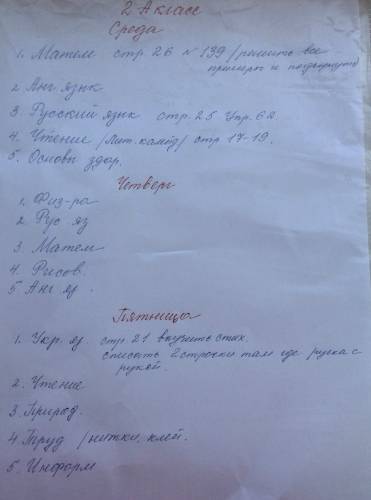 2 А класс
Среда
1. Матем стр. 26 № 139 /решить все
примеры и
2 Анг. язык
3. Русский язык стр. 25 Упр. 62.
4. Чтение /Лит. стр 17-19.
5. Основы здор.
Четверг
1. Физ-ра
2 Рус яз
3. Матем
4. Рисов.
5 Анг яз.
Пятница
1. Укр. яз. стр. 21 выучить стих.
списать 2 строчки там где ручка с
рукой.
2. Чтение
3 Природ.
4 Труд /нитки, клей.
5. Информ